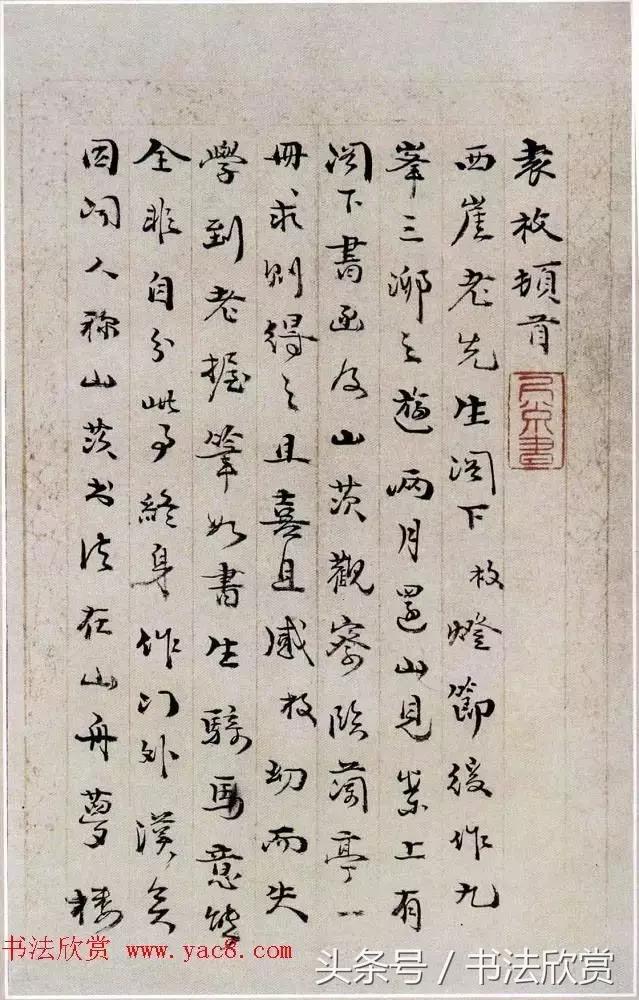 袁枚頓首
西崖老先生閣下枚燈節後作九
峯三泖之遊兩月還山見案上有
閣下書函及山茨觀察臨蘭亭一
冊求則得之且喜且感枚幼而失
學到老握筆如書生騎馬意態
全非自分此事終身作门外漢矣
因聞人稱山茨書法在山舟夢樓
书法欣赏 www.yac8.com
头条号/书法欣赏